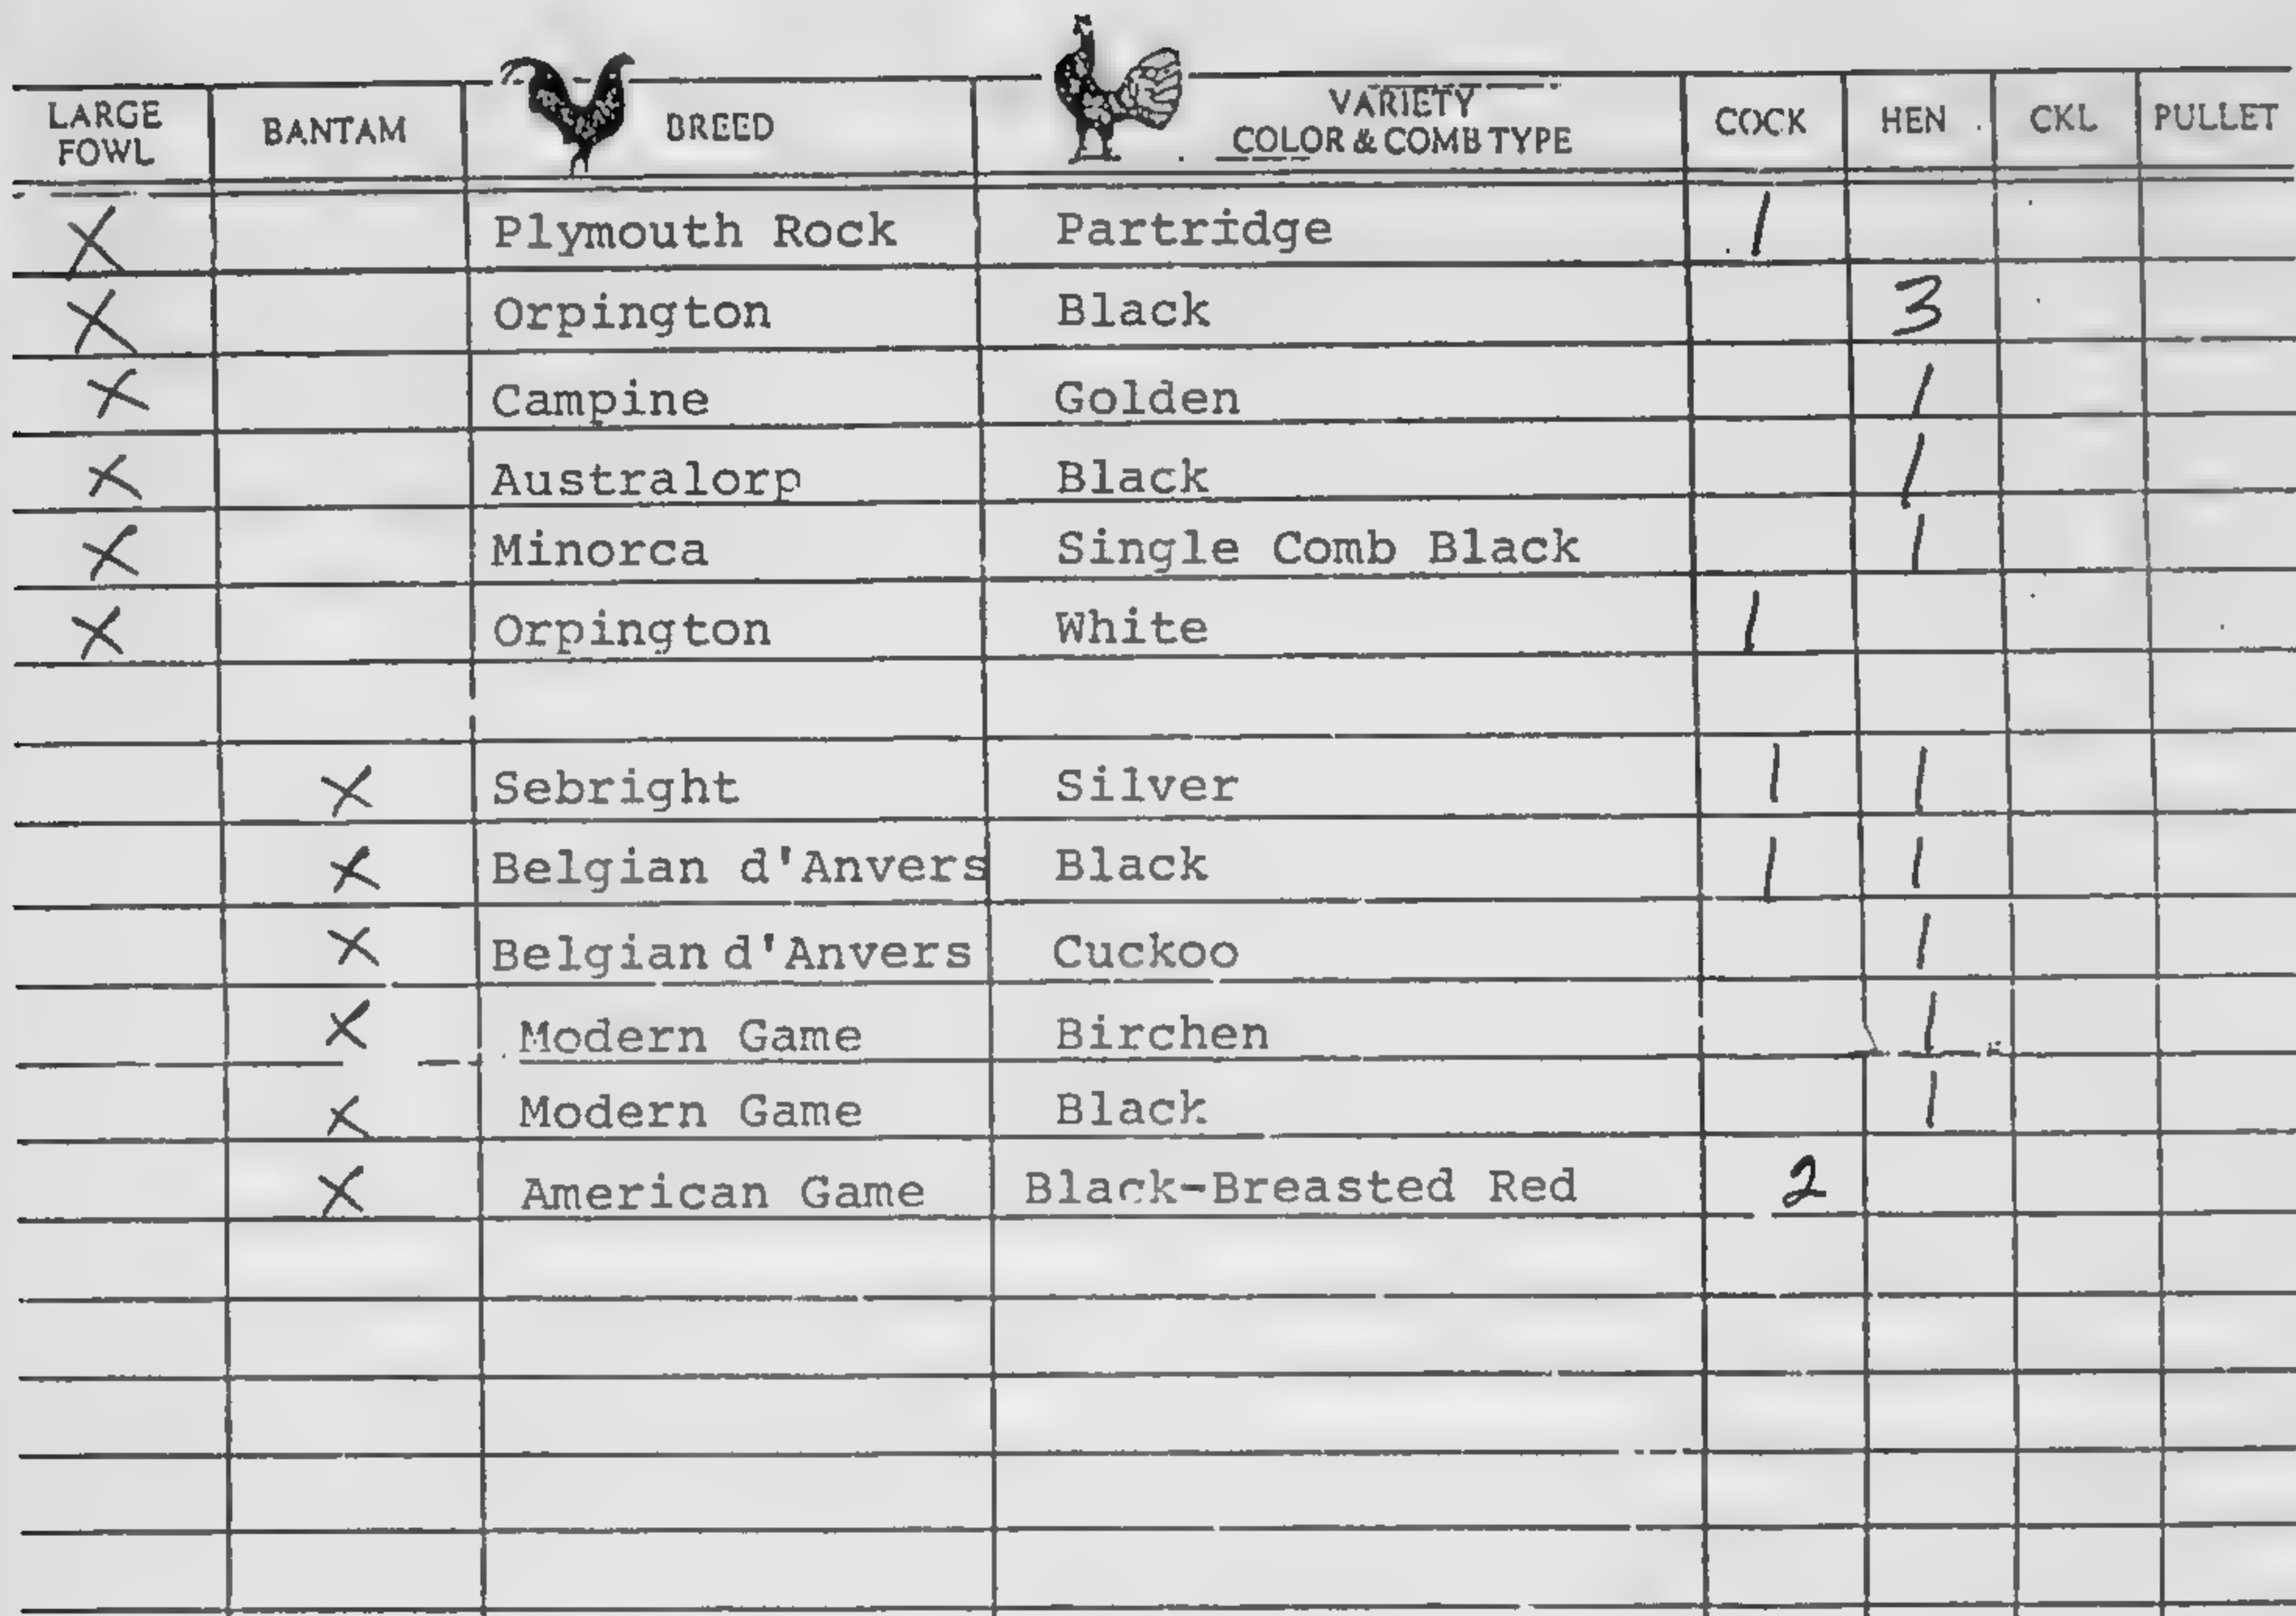 LARGE FOWL BANTAM BREED VARIETY COLOR & COMB TYPE COCK HEN CKL PULLET
X Plymouth Rock Partridge 1
X Orpington Black 3
X Campine Golden 1
X Australorp Black 1
X Minorca Single Comb Black 1
X Orpington White 1
X Sebright Silver 1 1
X Belgian d'Anvers Black 1 1
X Belgian d'Anvers Cuckoo 1
X Modern Game Birchen 1
X Modern Game Black 1
X American Game Black-Breasted Red 2